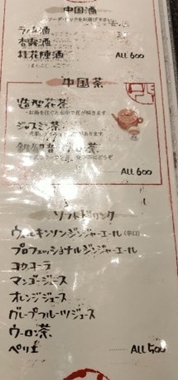 中国酒
杏露酒
桂花陳酒
ALL 600
中国茶
造型花茶
ジャスミン茶
ALL 600
ソフトドリンク
ウィルキンソンジンジャーエール(辛口)
プロフェッショナルジンジャーエール
コカコーラ
マンゴージュース
オレンジジュース
グレープフルーツジュース
ウーロン茶
ペリエ
ALL 500